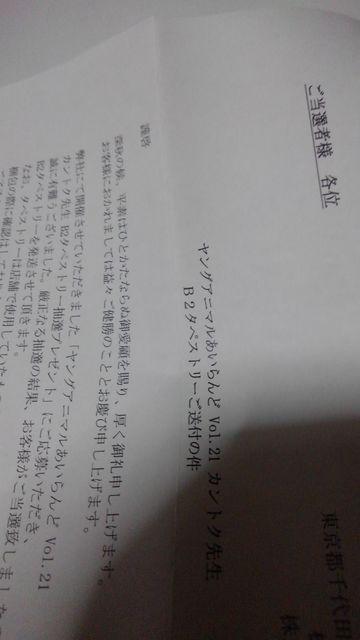 ご当選者様 各位
東京都千代田
株
ヤングアニマルあいらんど Vol.21 カントク先生
B2タペストリーご送付の件
謹啓
深秋の候、平素はひとかたならぬ御愛顧を賜り、厚く御礼申し上げます。
お客様におかれましては益々ご健勝のこととお慶び申し上げます。
弊社にて開催させていただきました「ヤングアニマルあいらんど Vol.21
カントク先生 B2タペストリー抽選プレゼント」にご応募いただき
誠に有難うございました。厳正なる抽選の結果、お客様がご当選致しましたので
B2タペストリーを発送させて頂きます。
なお、タペストリーは店舗で使用していた
梱包の際に確認はしてお